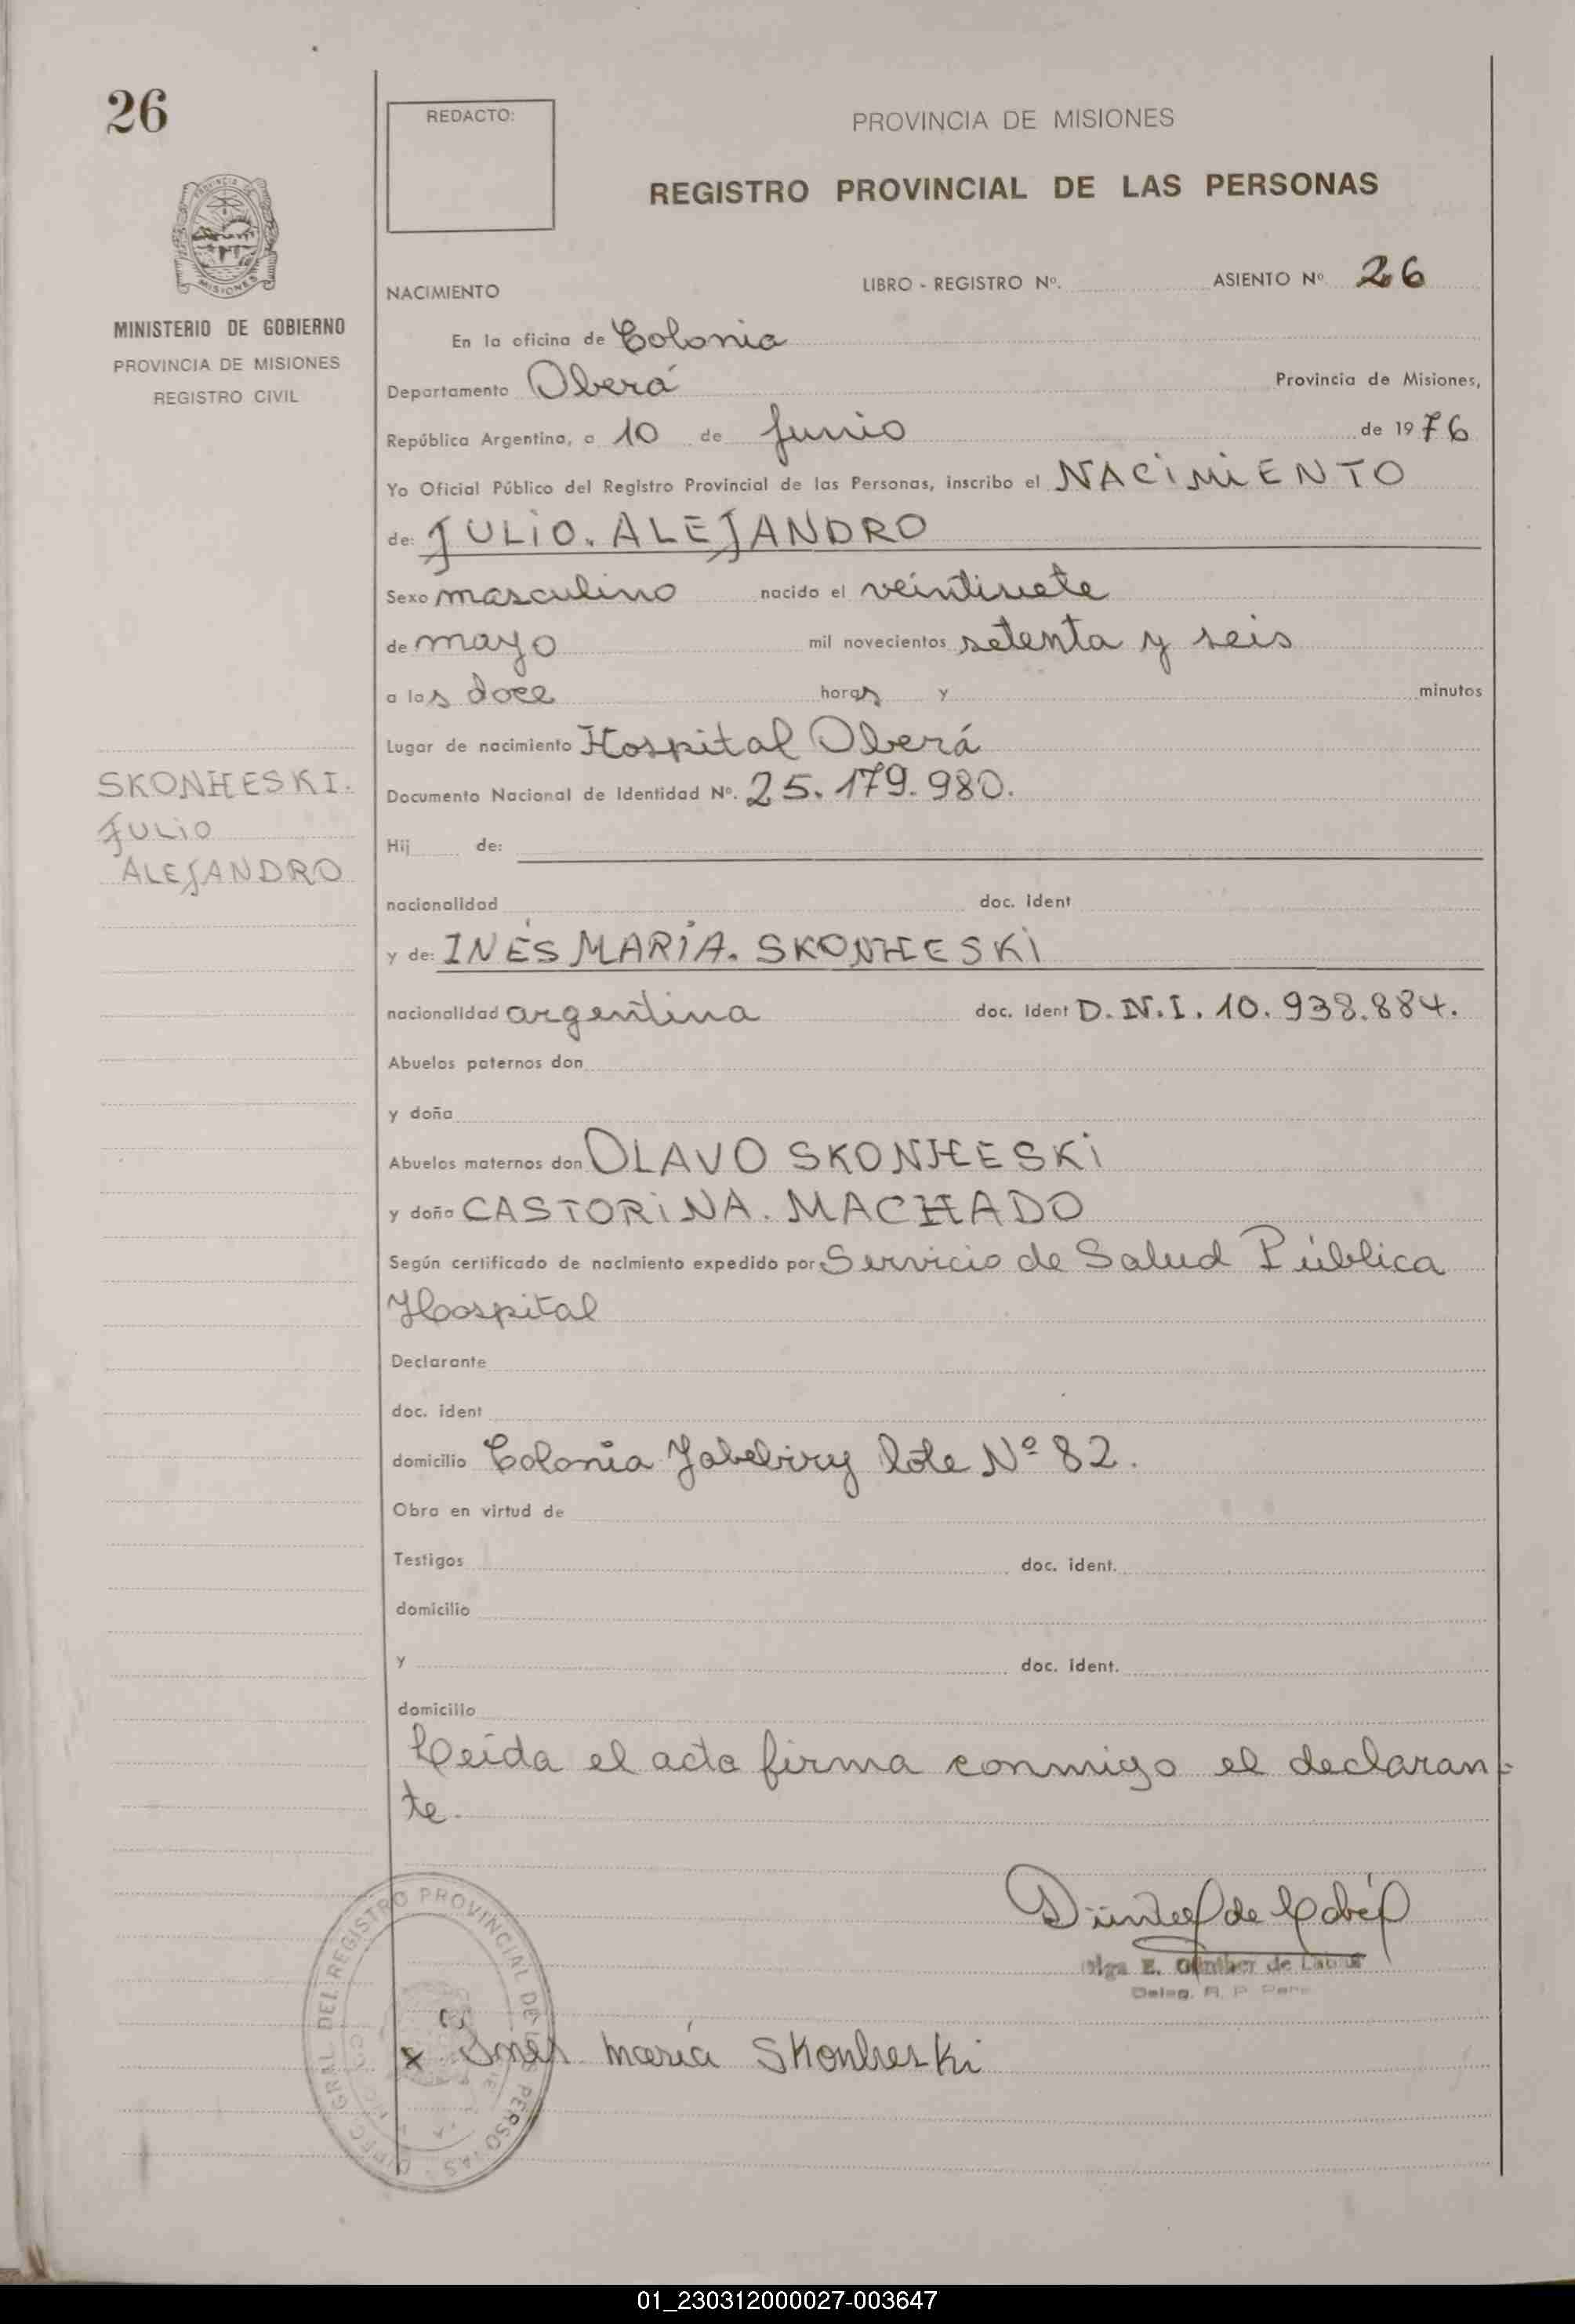 26
PROVINCIA DE
MISIONES
MINISTERIO DE GOBIERNO
PROVINCIA DE MISIONES
REGISTRO CIVIL
SKONHESKI.
JULIO
ALEJANDRO
REDACTO:
PROVINCIA DE MISIONES
REGISTRO PROVINCIAL DE LAS PERSONAS
NACIMIENTO LIBRO - REGISTRO Nº. ASIENTO Nº 26
En la oficina de Colonia
Departamento Oberá Provincia de Misiones,
República Argentina, a 10 de Junio de 1976
Yo Oficial Público del Registro Provincial de las Personas, inscribo el NACIMIENTO
de: JULIO. ALEJANDRO
Sexo masculino nacido el veintisiete
de mayo mil novecientos setenta y seis
a las doce horas y minutos
Lugar de nacimiento Hospital Oberá
Documento Nacional de Identidad Nº. 25.179.980.
Hij de:
nacionalidad doc. ident
y de: INÉS MARÍA. SKONHESKI
nacionalidad argentina doc. ident D.N.I. 10.938.884.
Abuelos paternos don
y doña
Abuelos maternos don OLAVO SKONHESKI
y doña CASTORINA. MACHADO
Según certificado de nacimiento expedido por Servicio de Salud Pública
Hospital
Declarante
doc. ident
domicilio Colonia Yabebiry lote Nº 82.
Obra en virtud de
Testigos doc. ident.
domicilio
y doc. ident.
domicilio
Leída el acta firma conmigo el declaran-
te.
Olga E. Günther de
Deleg. R. P. Pers.
DIREC. GRAL. DEL REGISTRO PROVINCIAL DE LAS PERSONAS
x Inés maría Skonheski
01_230312000027-003647